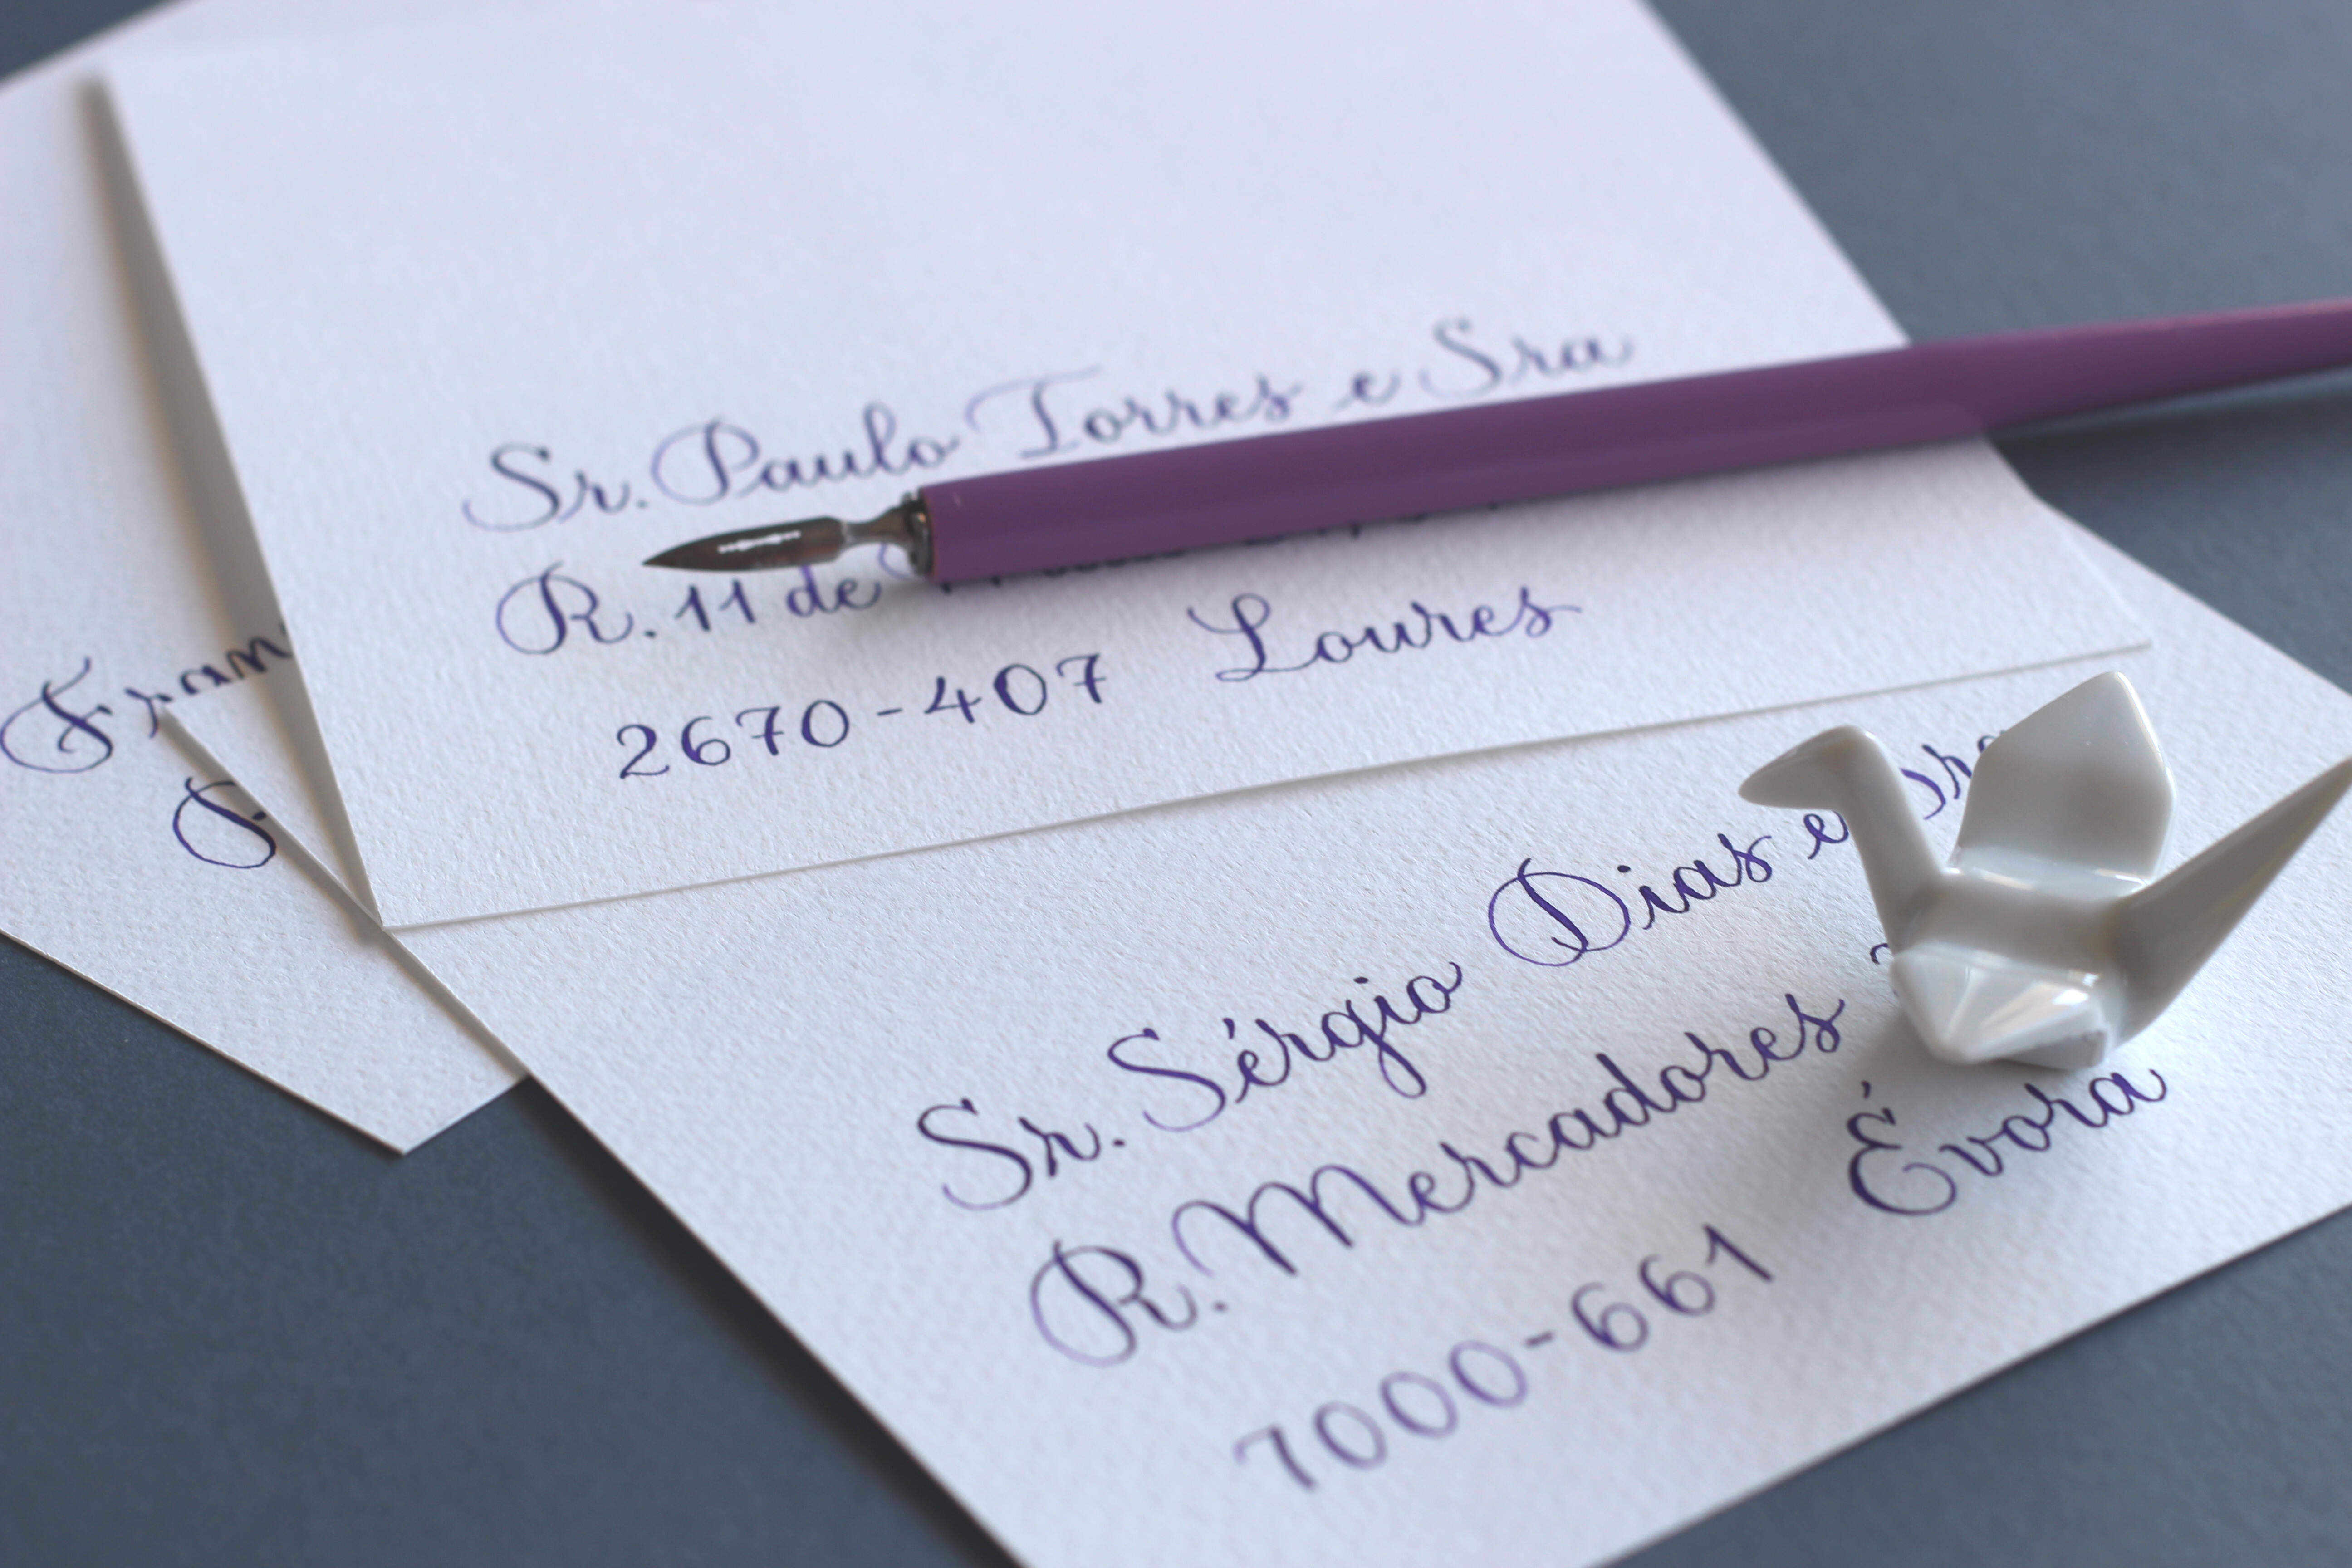 Sr. Paulo Torres e Sra
R. 11 de
2670-407 Loures
Sr. Sérgio Dias e Sra
R. Mercadores
7000-661 Évora